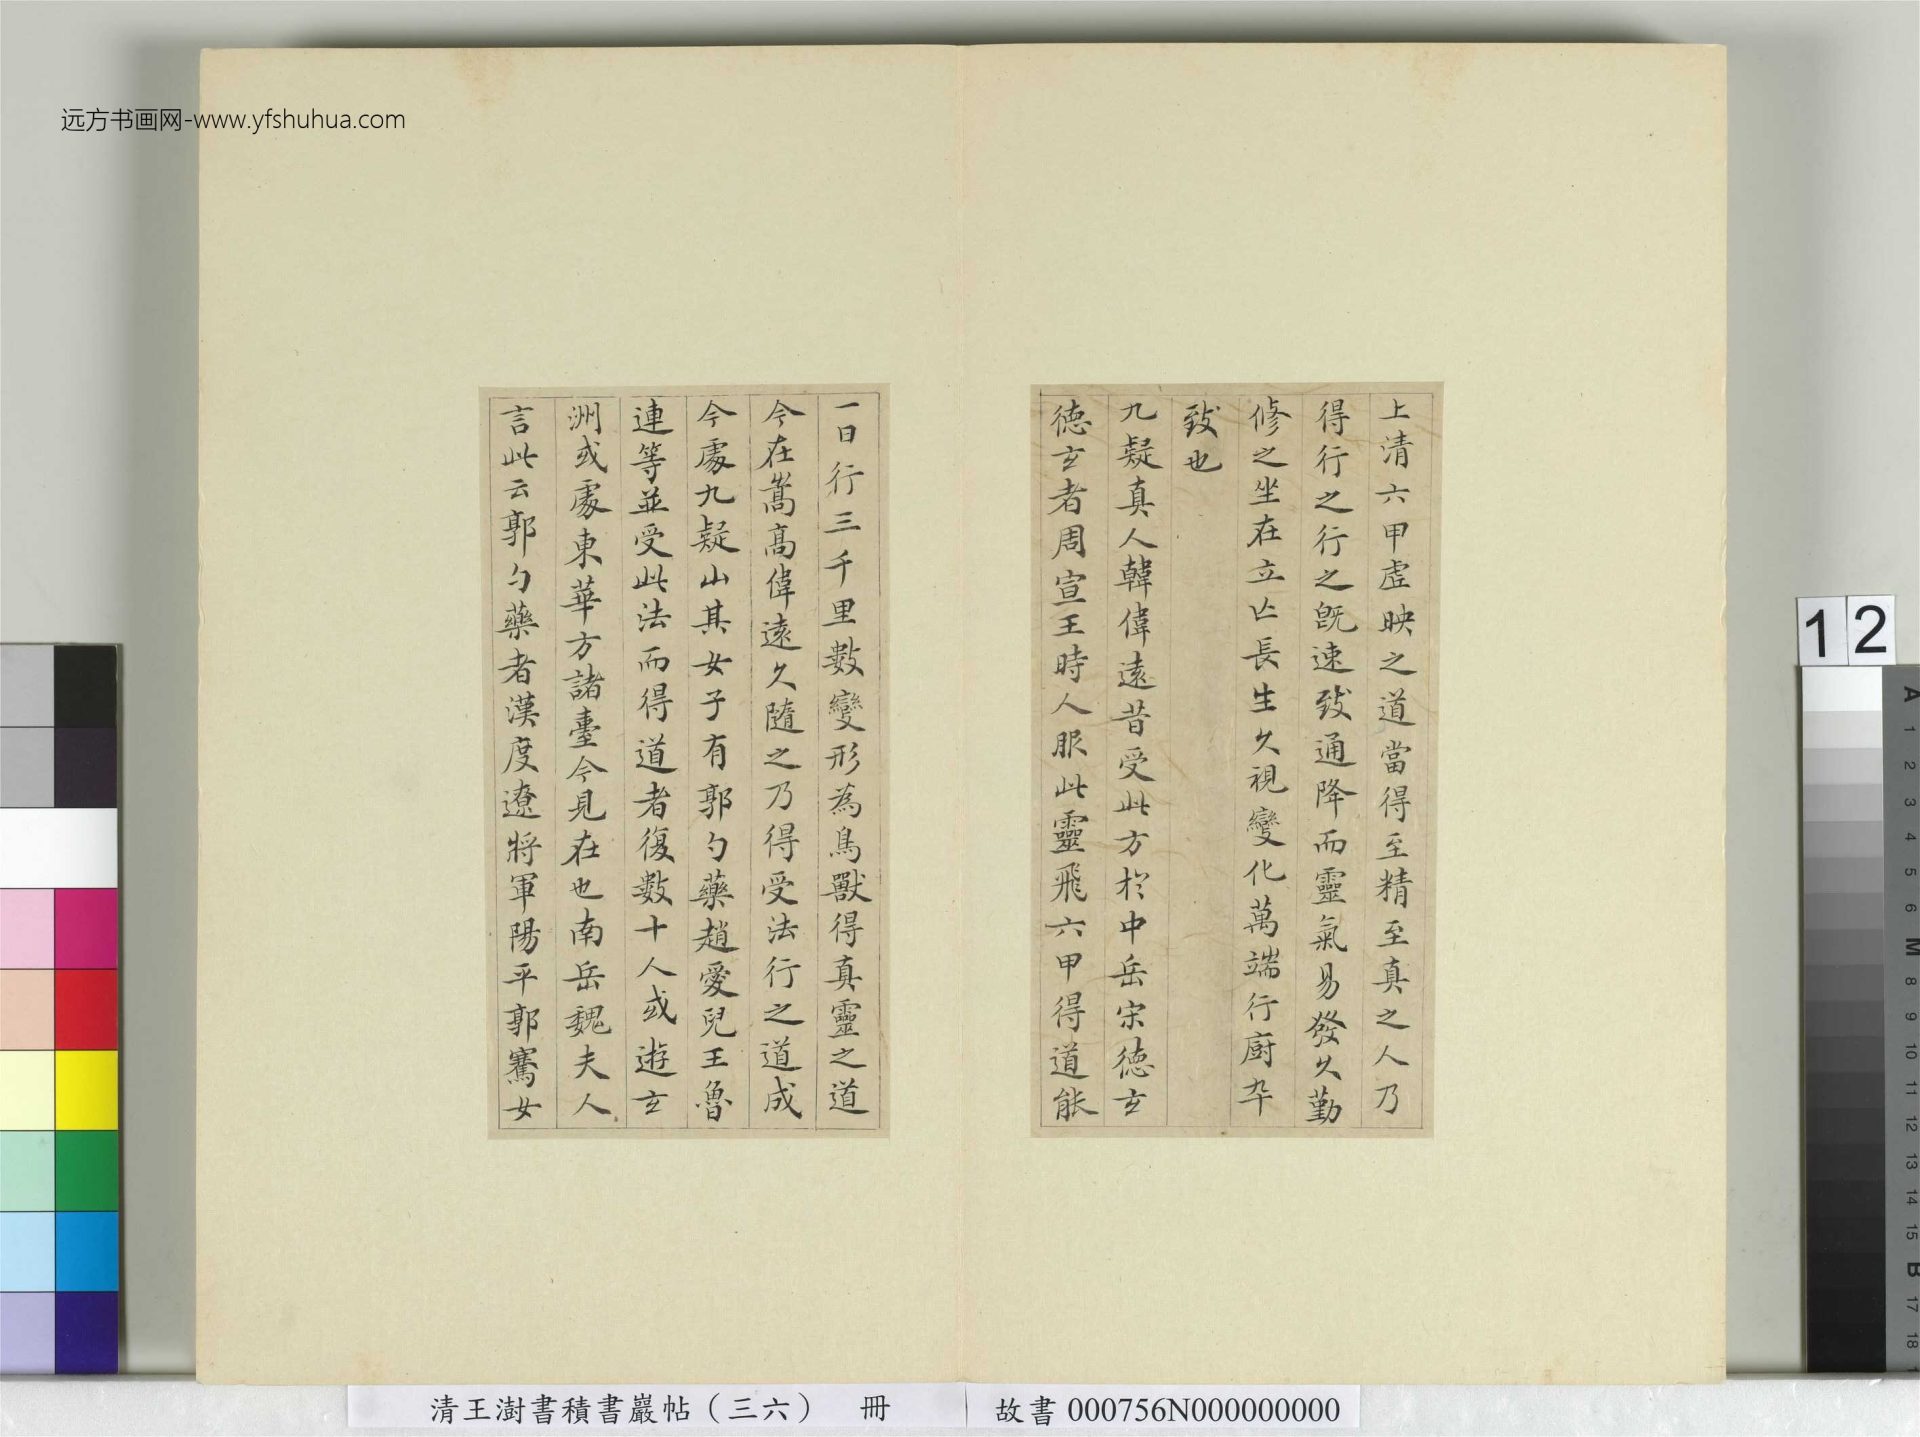 远方书画网-www.yfshuhua.com
上清六甲虛映之道當得至精至真之人乃
得行之行之既速致通降而靈氣易發久勤
修之坐在立亡長生久視變化萬端行廚卒
致也
九疑真人韓偉遠昔受此方於中岳宋德玄
德玄者周宣王時人服此靈飛六甲得道能
一日行三千里數變形為鳥獸得真靈之道
今在嵩高偉遠久隨之乃得受法行之道成
今處九疑山其女子有郭勺藥趙愛兒王魯
連等並受此法而得道者復數十人或遊玄
洲或處東華方諸臺今見在也南岳魏夫人
言此云郭勺藥者漢度遼將軍陽平郭騫女
12
A
1
2
3
4
5
6
M
8
9
10
11
12
13
14
15
B
17
18
清王澍書積書巖帖（三六） 冊
故書 000756N000000000